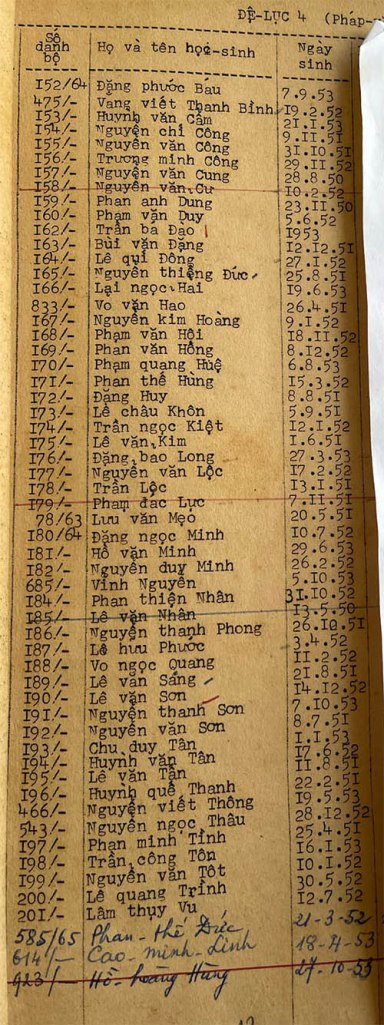 ĐỆ-LỤC 4 (Pháp-
Số danh bộ Họ và tên học-sinh Ngày sinh
I52/64 Đặng phước Báu 7.9.53
475/- Vang viết Thanh Bỉnh I9.2.52
I53/- Huynh văn Cẩm 2I.I.53
I54/- Nguyễn chí Công 9.II.5I
I55/- Nguyễn văn Công 3I.I0.5I
I56/- Trương minh Công 29.II.52
I57/- Nguyễn văn Cung 28.8.50
I58/- Nguyễn văn Cư I0.2.52
I59/- Phan anh Dung 23.II.50
I60/- Phạm văn Duy 5.6.52
I62/- Trần bá Đạo I953
I63/- Bùi văn Đặng I2.I2.5I
I64/- Lê quí Đông 27.I.52
I65/- Nguyễn thiếng Đức 25.8.5I
I66/- Lại ngọc Hai I9.6.53
833/- Vo văn Hao 26.4.5I
I67/- Nguyễn kim Hoàng 9.I.52
I68/- Phạm văn Hội I8.II.52
I69/- Phan văn Hồng 8.I2.52
I70/- Phạm quang Huệ 6.8.53
I7I/- Phan thế Hùng I5.3.52
I72/- Đặng Huy 8.8.5I
I73/- Lê châu Khôn 5.9.5I
I74/- Trần ngọc Kiệt I2.I.52
I75/- Lê văn Kim I.6.5I
I76/- Đặng bao Long 27.3.53
I77/- Nguyễn văn Lộc I7.2.52
I78/- Trần Lộc I3.I.5I
I79/- Phạm đac Lực 7.II.5I
78/63 Lưu văn Mẹo 20.5.5I
I80/64 Đặng ngọc Minh I0.7.52
I8I/- Hồ văn Minh 29.6.53
I82/- Nguyễn duy Minh 26.2.52
685/- Vinh Nguyên 5.I0.53
I84/- Phan thiện Nhân 3I.I0.52
I85/- Lê văn Nhân I3.5.50
I86/- Nguyễn thanh Phong 26.I0.5I
I87/- Lê hưu Phước 3.4.52
I88/- Vo ngọc Quang II.2.52
I89/- Lê văn Sáng 2I.8.5I
I90/- Lê văn Sơn I4.I2.52
I9I/- Nguyễn thanh Sơn 7.I0.53
I92/- Nguyễn văn Sơn 8.7.5I
I93/- Chu duy Tân I.I.53
I94/- Huỳnh văn Tân I7.6.52
I95/- Lê văn Tân II.8.5I
I96/- Huynh quê Thanh 22.2.5I
466/- Nguyễn viết Thông I9.5.53
543/- Nguyễn ngọc Thâu 28.I2.52
I97/- Phan minh Tinh 25.4.5I
I98/- Trần công Tôn I6.I.53
I99/- Nguyễn văn Tốt I0.I.52
200/- Lê quang Trinh 30.5.52
20I/- Lâm thụy Vu I2.7.52
585/65 Phan-thế Đức 21-3-52
614/- Cao-minh-Linh 18-4-53
923/- Hồ-hoàng Hùng 27-10-53